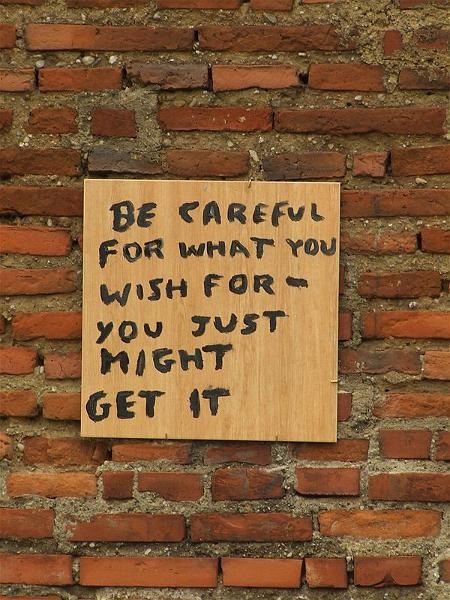 BE CAREFUL
FOR WHAT YOU
WISH FOR-
YOU JUST
MIGHT
GET IT